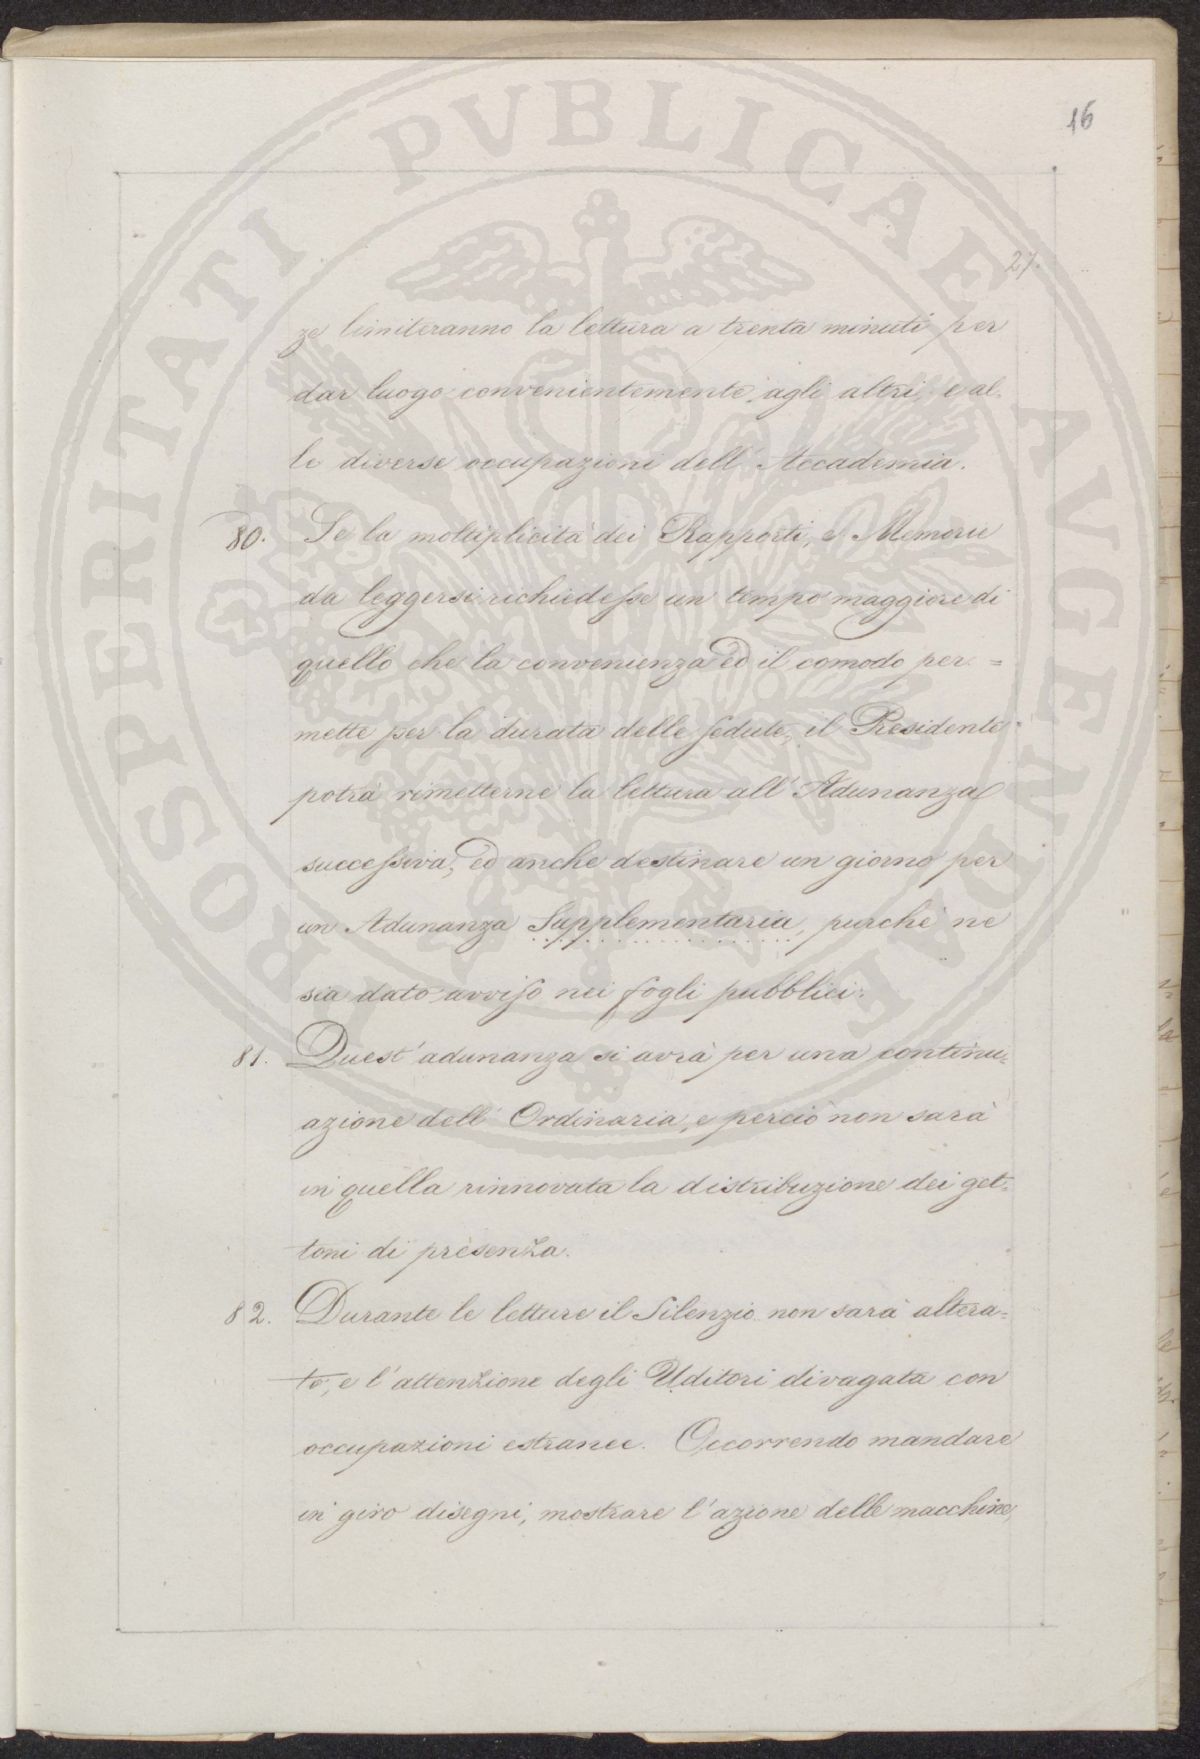 16
27.
ze limiteranno la lettura a trenta minuti per
dar luogo convenientemente agli altri, e al-
le diverse occupazioni dell' Accademia.
80. Se la moltiplicità dei Rapporti, e Memorie
da leggersi richiedesse un tempo maggiore di
quello che la convenienza ed il comodo per=
mette per la durata delle sedute, il Presidente
potrà rimetterne la lettura all' Adunanza
successiva, ed anche destinare un giorno per
un Adunanza Supplementaria, purchè ne
sia dato avviso nei fogli pubblici.
81. Quest' adunanza si avrà per una continu=
azione dell' Ordinaria, e perciò non sarà
in quella rinnovata la distribuzione dei get=
toni di presenza.
82. Durante le letture il Silenzio non sarà altera=
to, e l' attenzione degli Uditori divagata con
occupazioni estranee. Occorrendo mandare
in giro disegni, mostrare l' azione delle macchine,
PROSPERITATI PVBLICAE AVGENDAE